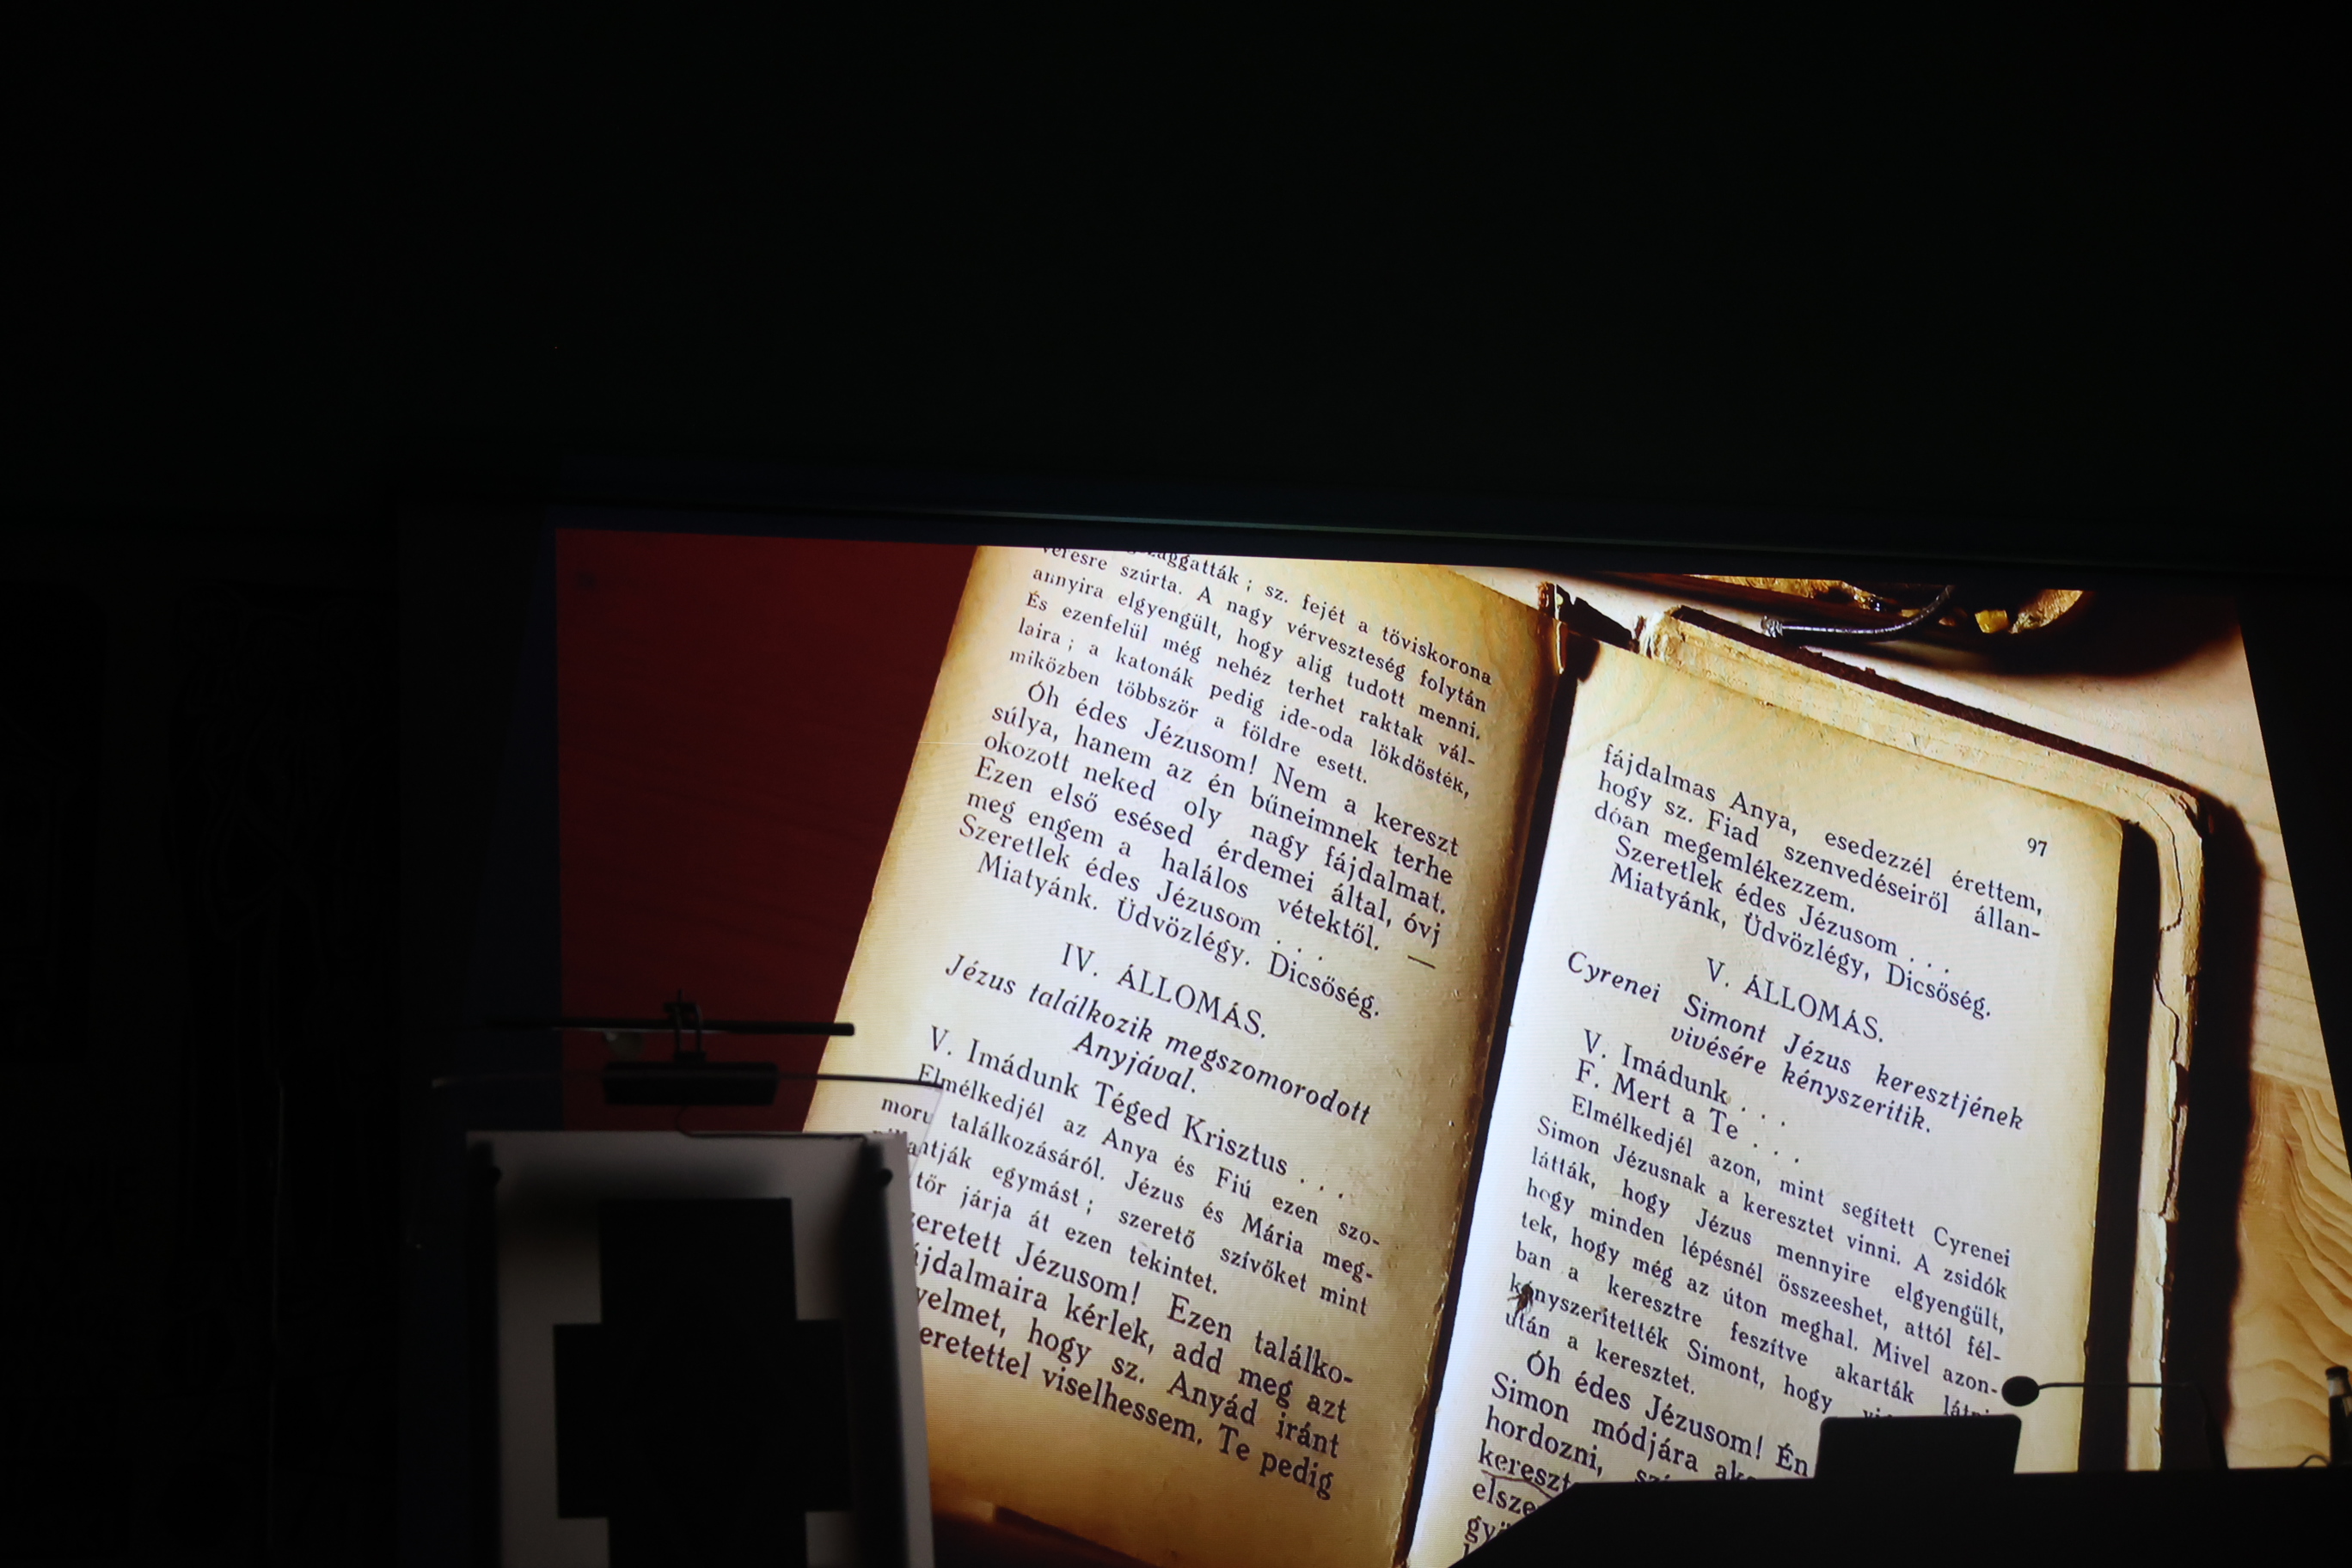 zaggatták ; sz. fejét a töviskorona
véresre szúrta. A nagy vérveszteség folytán
annyira elgyengült, hogy alig tudott menni.
És ezenfelül még nehéz terhet raktak vál-
laira ; a katonák pedig ide-oda lökdösték,
miközben többször a földre esett.
Óh édes Jézusom! Nem a kereszt
súlya, hanem az én bűneimnek terhe
okozott neked oly nagy fájdalmat.
Ezen első esésed érdemei által, óvj
meg engem a halálos vétektől. —
Szeretlek édes Jézusom . . .
Miatyánk. Üdvözlégy. Dicsőség.
IV. ÁLLOMÁS.
Jézus találkozik megszomorodott
Anyjával.
V. Imádunk Téged Krisztus . . .
Elmélkedjél az Anya és Fiú ezen szo-
moru találkozásáról. Jézus és Mária meg-
antják egymást ; szerető szívőket mint
tőr járja át ezen tekintet.
zeretett Jézusom! Ezen találko-
ájdalmaira kérlek, add meg azt
yelmet, hogy sz. Anyád iránt
eretettel viselhessem. Te pedig
97
fájdalmas Anya, esedezzél érettem,
hogy sz. Fiad szenvedéseiről állan-
dóan megemlékezzem.
Szeretlek édes Jézusom . . .
Miatyánk, Üdvözlégy, Dicsőség.
V. ÁLLOMÁS.
Cyrenei Simont Jézus keresztjének
vivésére kényszerítik.
V. Imádunk . . .
F. Mert a Te . . .
Elmélkedjél azon, mint segített Cyrenei
Simon Jézusnak a keresztet vinni. A zsidók
látták, hogy Jézus mennyire elgyengült,
hogy minden lépésnél összeeshet, attól fél-
tek, hogy még az úton meghal. Mivel azon-
ban a keresztre feszítve akarták látni
kényszerítették Simont, hogy
után a keresztet.
Óh édes Jézusom! Én
Simon módjára
hordozni,
kereszt
elsze